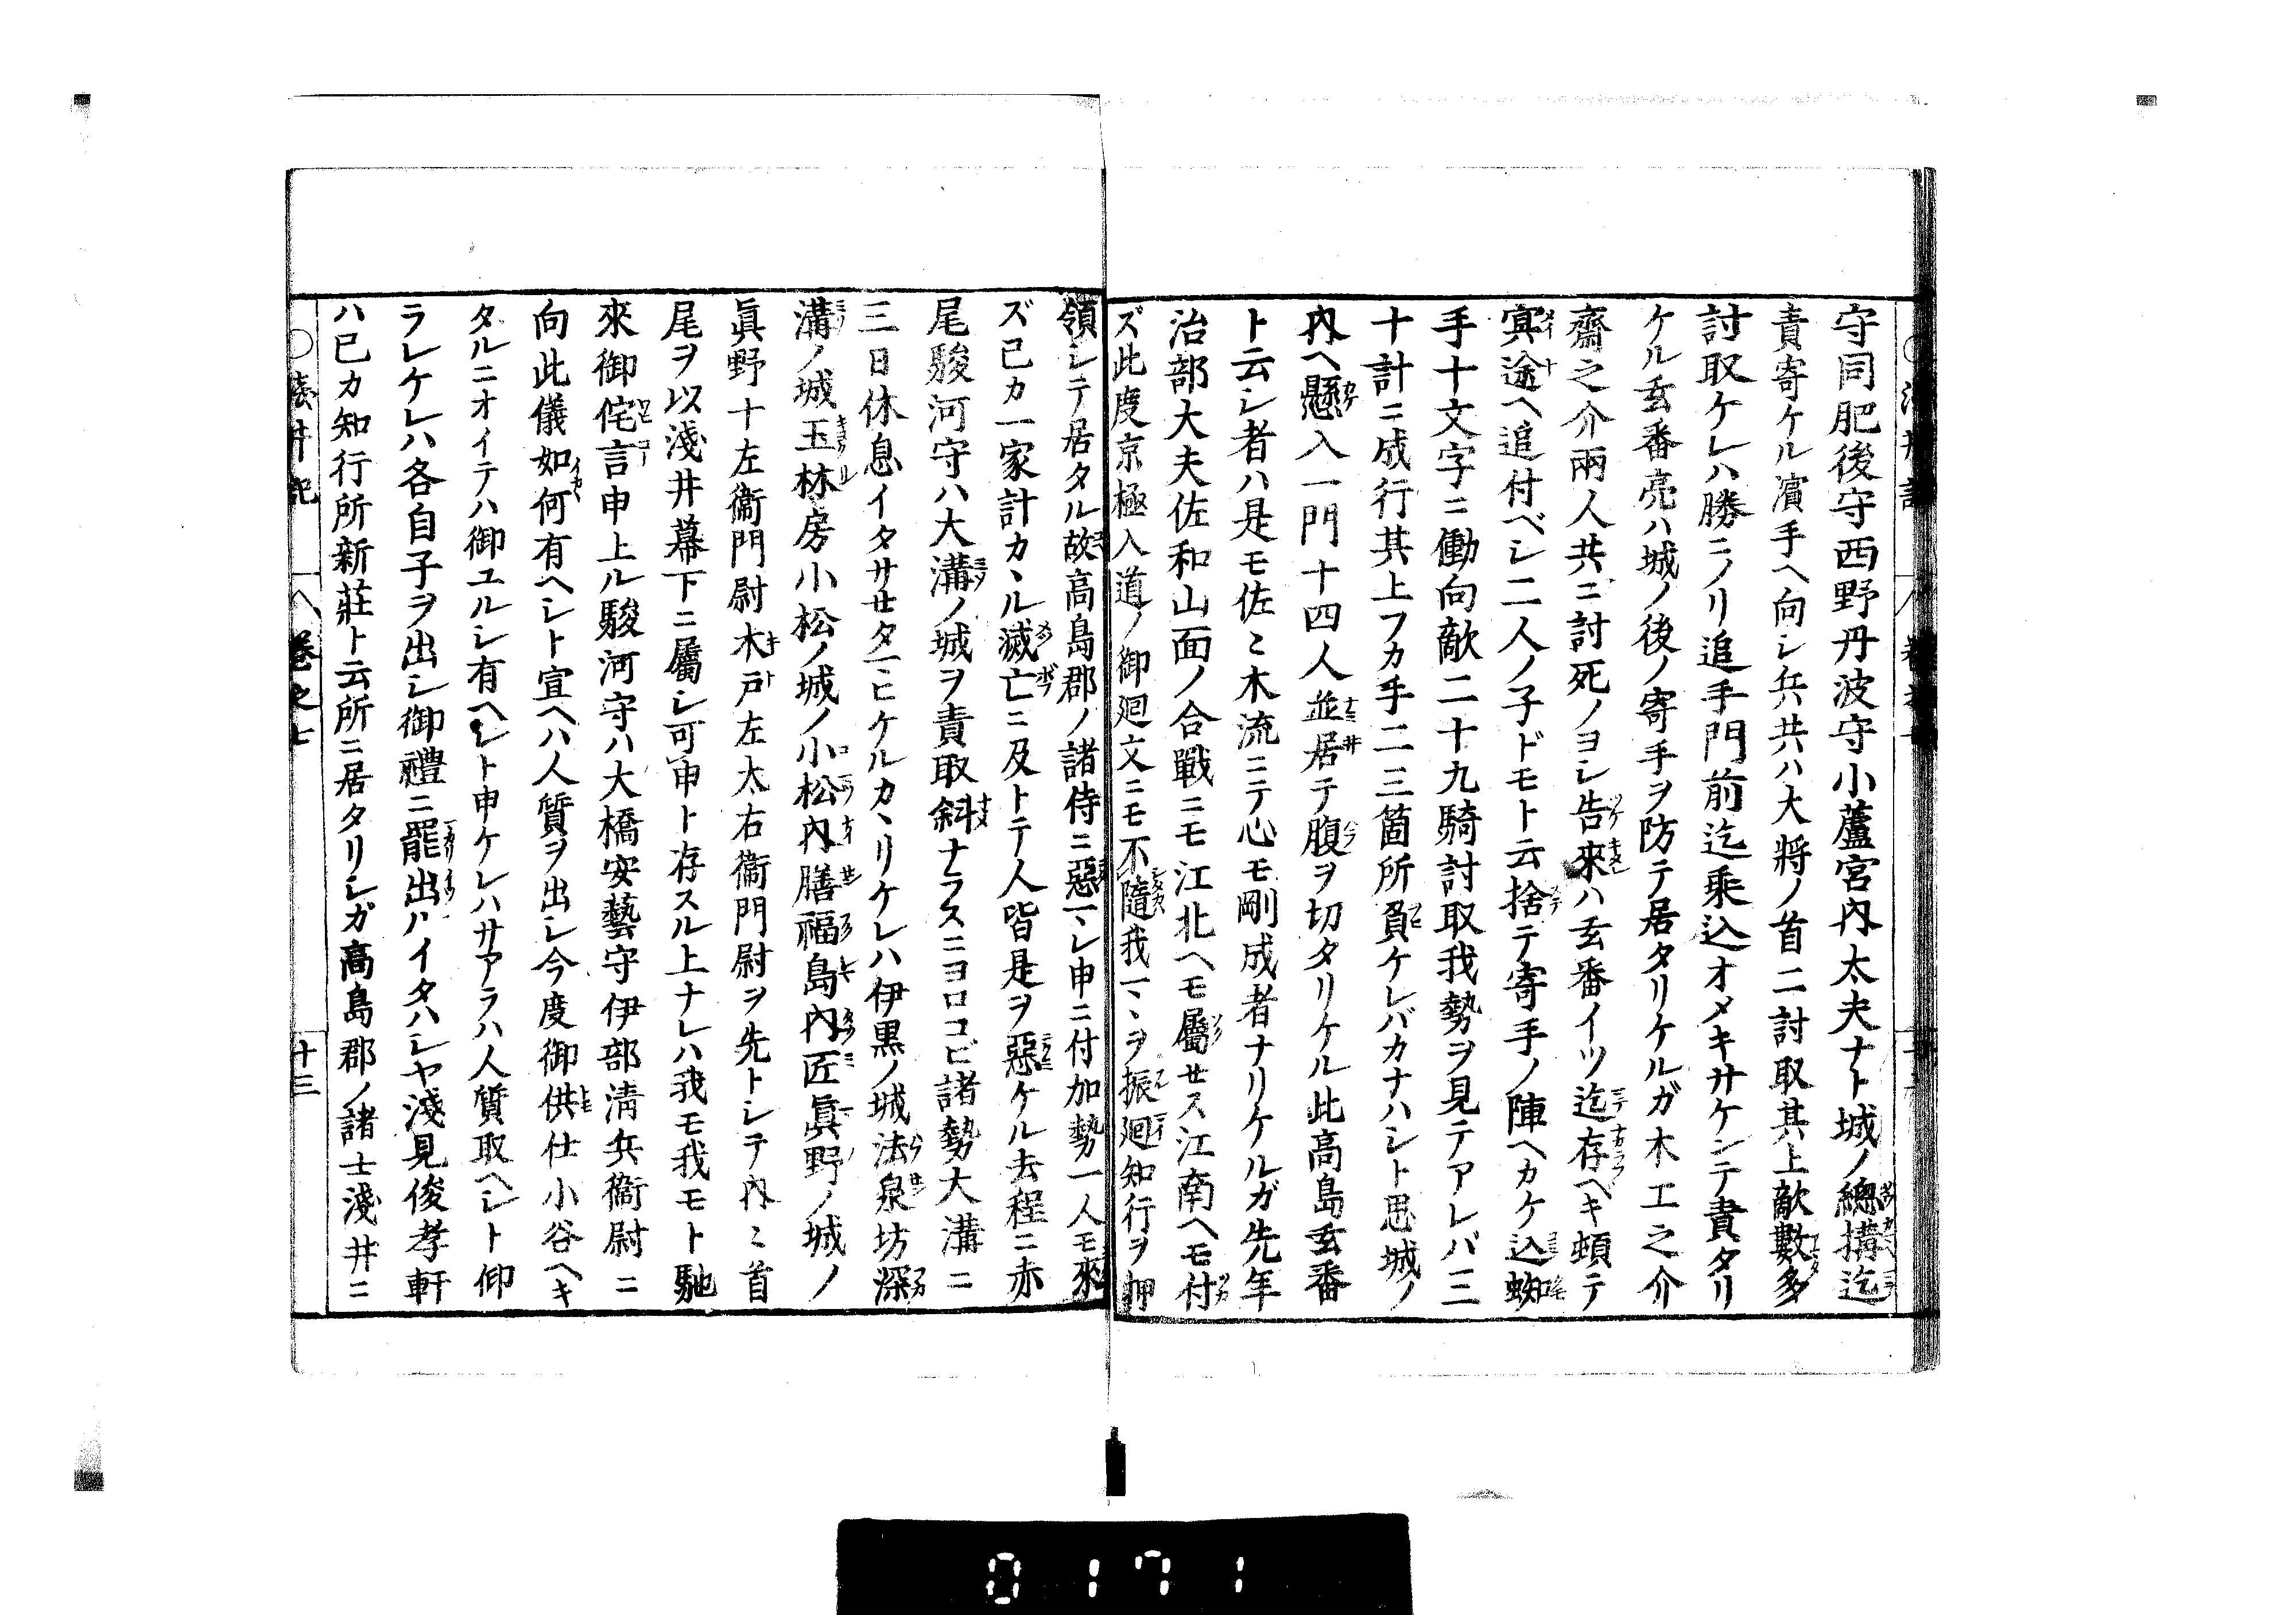 守同肥後守西野丹波守小蘆宮内太夫ナト城ノ總搆迄
責寄ケル濱手ヘ向シ兵共ハ大將ノ首二討取其上敵數多
討取ケレハ勝ニノリ追手門前迄乘込オメキサケンテ責タリ
ケル玄番亮ハ城ノ後ノ寄手ヲ防テ居タリケルガ木工之介
齋之介兩人共ニ討死ノヨシ告來ハ玄番イツ迄存ヘキ頓テ
冥途ヘ追付ベシ二人ノ子ドモト云捨テ寄手ノ陣ヘカケ込蜘
手十文字ニ働向敵二十九騎討取我勢ヲ見テアレバ三
十計ニ成行其上フカ手二三箇所負ケレバカナハシト思城ノ
内ヘ懸入一門十四人並居テ腹ヲ切タリケル此高島玄番
ト云シ者ハ是モ佐ミ木流ニテ心モ剛成者ナリケルガ先年
治部大夫佐和山面ノ合戰ニモ江北ヘモ屬セス江南ヘモ付
ズ此度京極入道ノ御廻文ニモ不隨我一ヽヲ振廻知行ヲ押
領シテ居タル故高島郡ノ諸侍ニ惡一ヽレ申ニ付加勢一人モ來
ズ已カ一家計カヽル滅亡ニ及トテ人皆是ヲ惡ケル去程ニ赤
尾駿河守ハ大溝ノ城ヲ責取斜ナラスニヨロコビ諸勢大溝ニ
三日休息イタサセタ一ヒケルカヽリケレハ伊黒ノ城法泉坊深
溝ノ城玉林房小松ノ城ノ小松内膳福島内匠眞野ノ城ノ
眞野十左衞門尉木戸左太右衞門尉ヲ先トシテ內ミ首
尾ヲ以淺井幕下ニ屬シ可申ト存スル上ナレハ我モ我モト馳
來御侘言申上ル駿河守ハ大橋安藝守伊部淸兵衞尉ニ
向此儀如何有ヘシト宣ヘハ人質ヲ出シ今度御供仕小谷ヘキ
タルニオイテハ御ユルシ有ヘシト申ケレハサアラハ人質取ヘシト仰
ラレケレハ各自子ヲ出シ御禮ニ罷出ハイタハシヤ淺見俊孝軒
ハ已カ知行所新莊ト云所ニ居タリシガ高島郡ノ諸士淺井ニ
○淺井記 卷之七 十三
0171